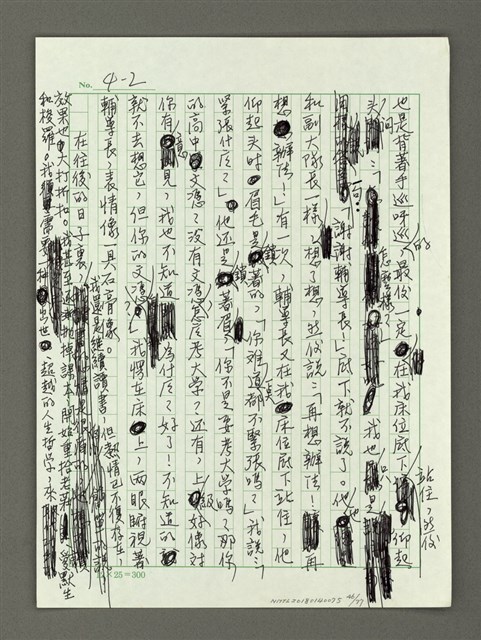 No. 4-2
也是背著手巡呀巡的，最後一定在我床位底下站住，然後仰起
頭問：「怎麼樣？」我也只是
用 說一句：「謝謝輔導長！」底下就不說了。他也
和副大隊長一樣，想了想，然後說：「再想辦法！再
想辦法！」有一次，輔導長又在我床位底下站住，他
仰起头時，眉毛是鎖著的，「你難道都不緊張嗎？」我說：「
緊張什么？」他还是鎖著眉，「你不是要考大学嗎？那你
的高中文凭？沒有文凭怎么考大学？还有，上級好像对
你有意見，我也不知道為什么？好了！不知道的
就不去想它，但你的文凭？」我愣在床上，两眼瞪視著
輔導長，表情像一具石膏像。
在往後的日子裏，我还是继續讀書，但熱情已不復存在，
效果也大打折扣。我甚至还 掉課本開始重拾老莊、愛默生
和梭羅。我 出世、超越的人生哲学，來
× 25 = 300
NMTL20180140075 46/77